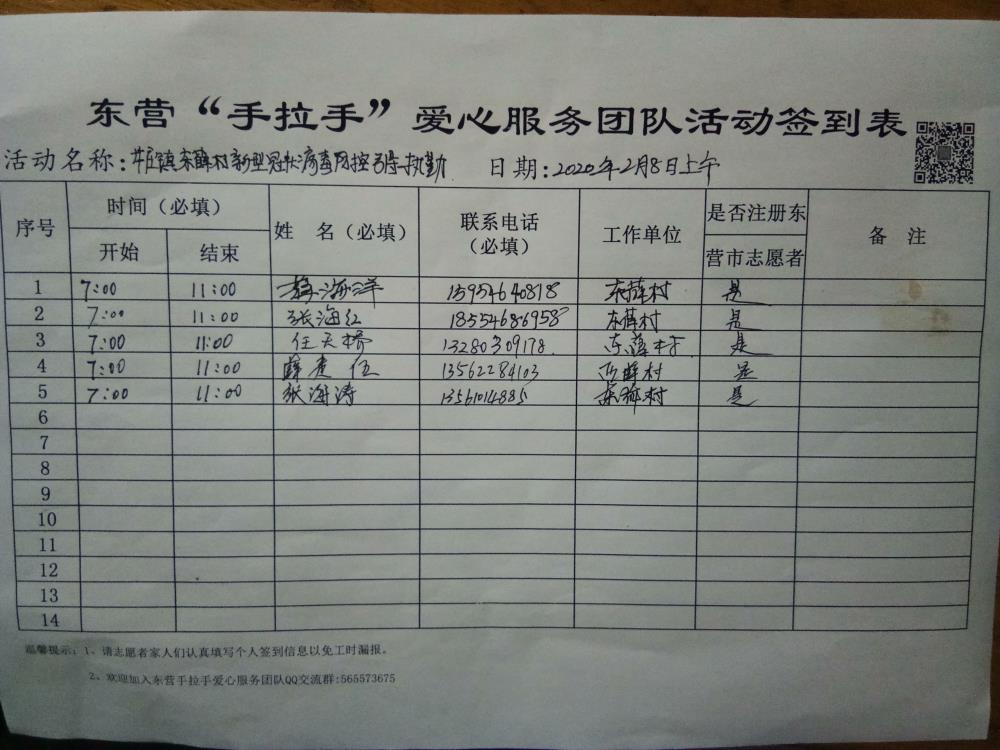 东营“手拉手”爱心服务团队活动签到表
活动名称: 镇东薛村新型冠状病毒防控 执勤 日期: 2020年2月8日上午
序号 时间（必填） 姓 名（必填） 联系电话（必填） 工作单位 是否注册东营市志愿者 备 注
开始 结束
1 7:00 11:00 海洋 15954640818 东薛村 是
2 7:00 11:00 张海红 18554686958 东薛村 是
3 7:00 11:00 任天桥 13280309178 东薛村 是
4 7:00 11:00 薛 伍 13562284103 西薛村 是
5 7:00 11:00 张海涛 13561014885 东薛村 是
6
7
8
9
10
11
12
13
14
温馨提示: 1、请志愿者家人们认真填写个人签到信息以免工时漏报。
2、欢迎加入东营手拉手爱心服务团队QQ交流群:565573675